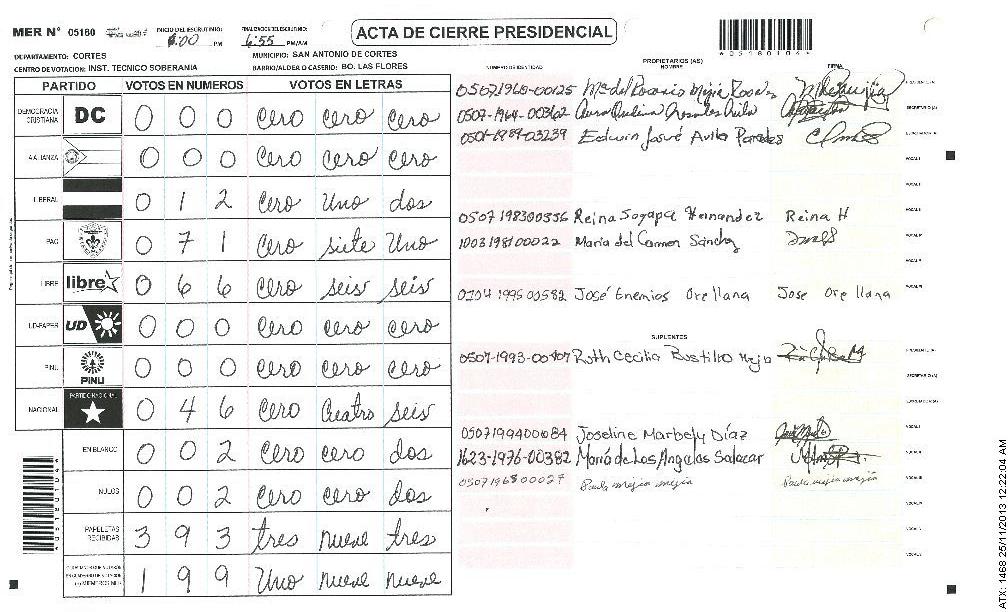 MER N° 05160 INICIO DEL ESCRUTINIO: 6:00 PM FINALIZACION DEL ESCRUTINIO: 6:55 PM/AM
ACTA DE CIERRE PRESIDENCIAL
DEPARTAMENTO: CORTES MUNICIPIO: SAN ANTONIO DE CORTES
CENTRO DE VOTACION: INST. TECNICO SOBERANIA BARRIO/ALDEA O CASERIO: BO. LAS FLORES
PARTIDO VOTOS EN NUMEROS VOTOS EN LETRAS
DEMOCRACIA CRISTIANA DC 0 0 0 Cero Cero Cero
ALIANZA 0 0 0 Cero Cero Cero
LIBERAL 0 1 2 Cero Uno dos
PAC 0 7 1 Cero siete Uno
LIBRE libre 0 6 6 Cero seis seis
UD-FAPER UD 0 0 0 Cero cero cero
PINU PINU 0 0 0 Cero cero cero
NACIONAL PARTIDO NACIONAL 0 4 6 Cero Cuatro seis
EN BLANCO 0 0 2 Cero cero dos
NULOS 0 0 2 Cero cero dos
PAPELETAS RECIBIDAS 3 9 3 tres nueve tres
1 9 9 Uno nueve nueve
NUMERO DE IDENTIDAD PROPIETARIOS (AS) NOMBRE FIRMA
0507-1960-00125 Ma del Rosario Mejia
0507-1964-00362
0501-1989-03239 Edwin Josué Avila Paredes
0507198300356 Reina Sagapa Hernandez Reina H
1003198100022 Maria del Carmen Sánchez
0104199500582 José Enemias Orellana Jose Orellana
SUPLENTES
0507-1993-00407 Ruth Cecilia Bustillo Mejia
0507199400084 Joseline Marbely Díaz
1623-1976-00382 María de Los Angeles Salazar
0507196800027 Paula mejia mejia Paula mejia mejia
ATX: 1468 25/11/2013 12:22:04 AM